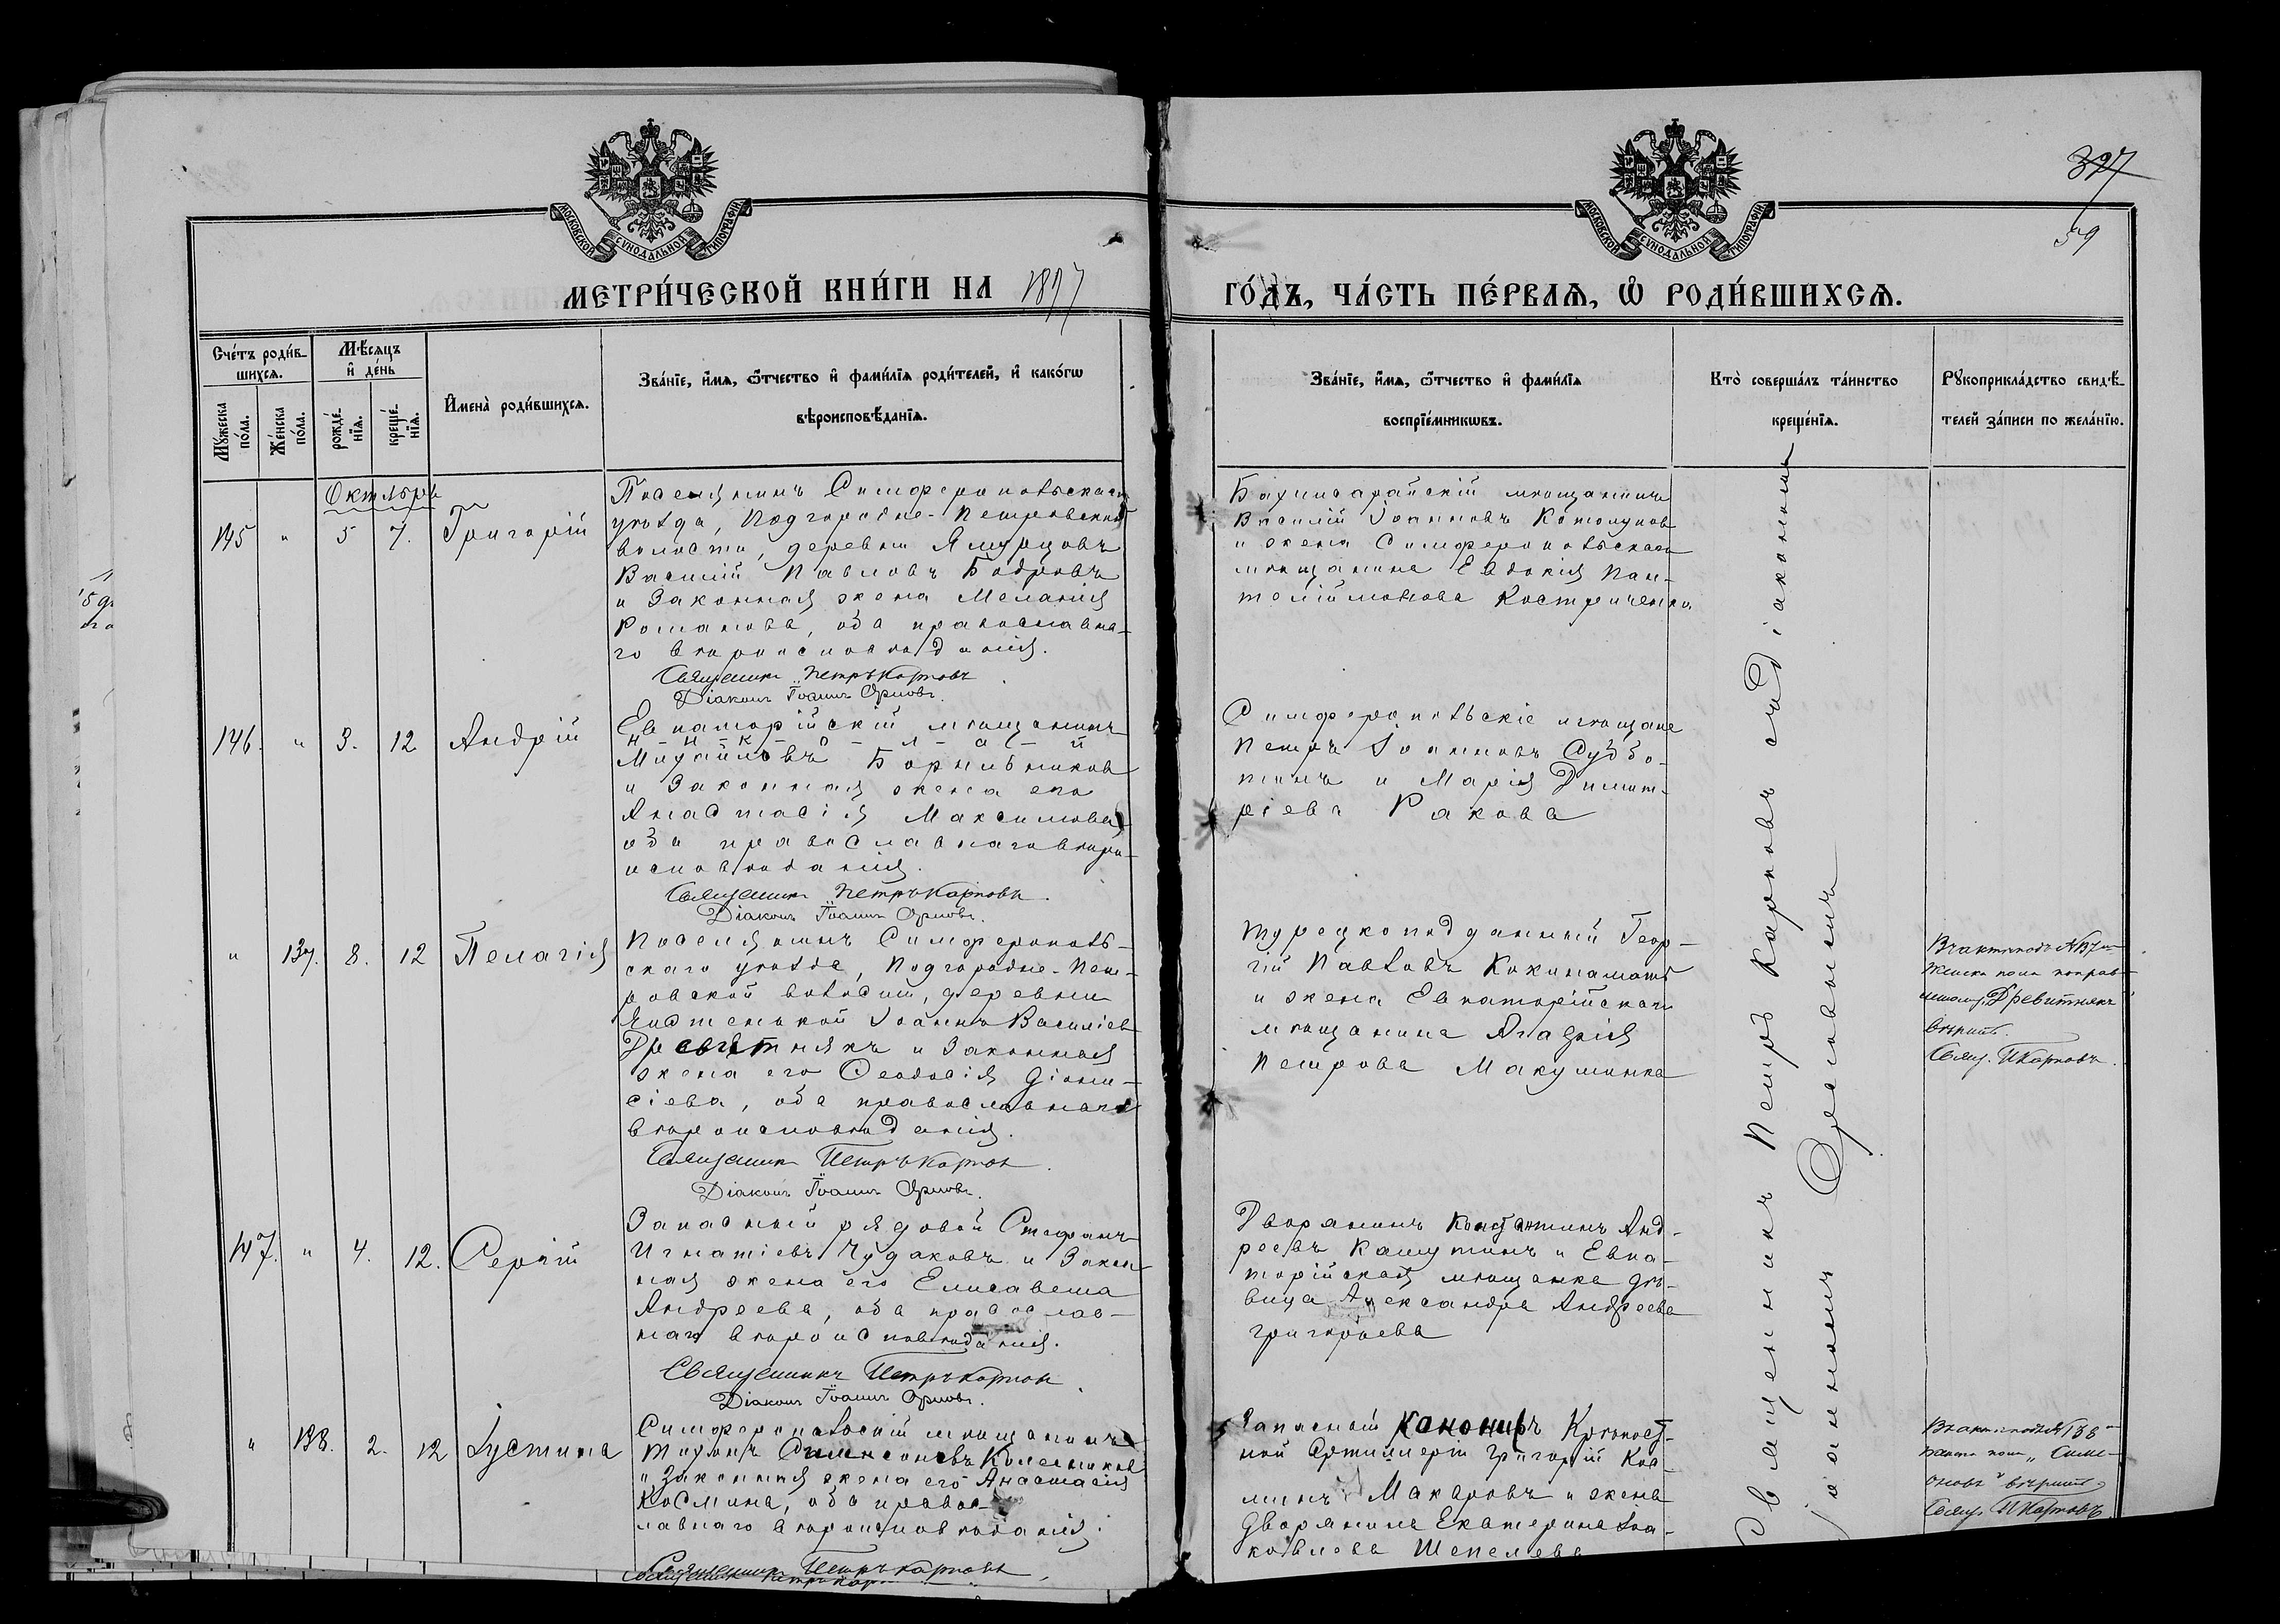 МОСКОВСКОЙ СѴНОДАЛЬНОЙ ТИПОГРАФІИ
МОСКОВСКОЙ СѴНОДАЛЬНОЙ ТИПОГРАФІИ
327
59
МЕТРИ́ЧЕСКОЙ КНИ́ГИ НА 1897
ГО́ДЪ, ЧА́СТЬ ПЕ́РВАѦ, Ѡ҆ РОДИ́ВШИХСѦ.
Сче́тъ роди́в-
шихсѧ.
Мѣ́сѧцъ
и҆ де́нь
Мꙋ́жеска
по́ла.
Же́нска
по́ла.
рожде́-
нїѧ.
креще́-
нїѧ.
И҆мена̀ роди́вшихсѧ.
Зва́нїе, и҆́мѧ, ѻ҆́тчество и҆ фами́лїѧ роди́телей, и҆ како́гѡ
вѣроисповѣ́данїѧ.
Зва́нїе, и҆́мѧ, ѻ҆́тчество и҆ фами́лїѧ
воспрїе́мникѡвъ.
Кто̀ соверша́лъ та́инство
креще́нїѧ.
Рꙋкоприкла́дство свидѣ́-
телей за́писи по жела́нїю.
Октябрь
145 " 5 7. Григорій
Поселянинъ Симферопольскаго
уѣзда, Подгородне-Петровской
волости, деревни
Василій Павловъ Бодровъ
и законная жена Меланія
Романова, оба православна-
го вѣроисповѣданія.
Священникъ Петръ Карповъ
Діаконъ Іоаннъ Орловъ.
Бахчисарайскій мѣщанинъ
Василій Іоанновъ
и жена Симферопольскаго
мѣщанина Евдокія Пан-
телiймонова Костриченко
146. " 3. 12 Андрій
Евпаторійскій мѣщанинъ
Н-и-к-о-л-а-й
Михайловъ
и законная жена его
Анастасія Максимова
оба православнаго вѣро-
исповѣданія.
Священникъ Петръ Карповъ.
Діаконъ Іоаннъ Орловъ.
Симферопольскіе мѣщане
Петръ Іоанновъ Суббо-
тинъ и Марія Димит-
ріева Ракова
" 137. 8. 12 Пелагія
Поселянинъ Симферополь-
скаго уѣзда, Подгородне-Пет-
ровской волости, деревни
Чистенькой Іоаннъ Василіев
Древитнякъ и законная
жена его Феодосія Діони-
сіева, оба православнаго
вѣроисповѣданія.
Священникъ Петръ Карпов.
Діаконъ Іоаннъ Орловъ.
Турецкоподданный Геор-
гій Павловъ
и жена Евпаторійскаго
мѣщанина Агафія
Петрова
В актѣ подъ №137мъ
женска пола поправ-
"Древитнякъ"
вѣрить.
Свящ. П Карповъ.
147. " 4. 12. Сергій
Запасный рядовой Стефанъ
Игнатіевъ Чудаковъ и закон-
ная жена его Елисавета
Андреева, оба православ-
наго вѣроисповѣданія.
Священникъ Петръ Карпов
Діаконъ Іоаннъ Орловъ.
Дворянинъ Константинъ Анд-
реевъ Кашутинъ и Евпа-
торійская мѣщанка дѣ-
вица Александра Андреева
Григорьева
" 138. 2. 12 Іустина
Симферопольскій мѣщанинъ
Тихонъ Симеоновъ Колесников
и законная жена его Анастасія
Космина, оба правос-
лавнаго вѣроисповѣданія.
Священникъ Петръ Карповъ
Запасный канониръ Крѣпост-
ной Артиллеріи Григорій Кос-
минъ Макаровъ и жена
дворянина Екатерина Іоа-
Шепелева
В актѣ подъ №138
"Симе-
оновъ" вѣрить
Свящ. П Карповъ
Священникъ Петръ Карповъ съ діакономъ
Іоанномъ Орловымъ